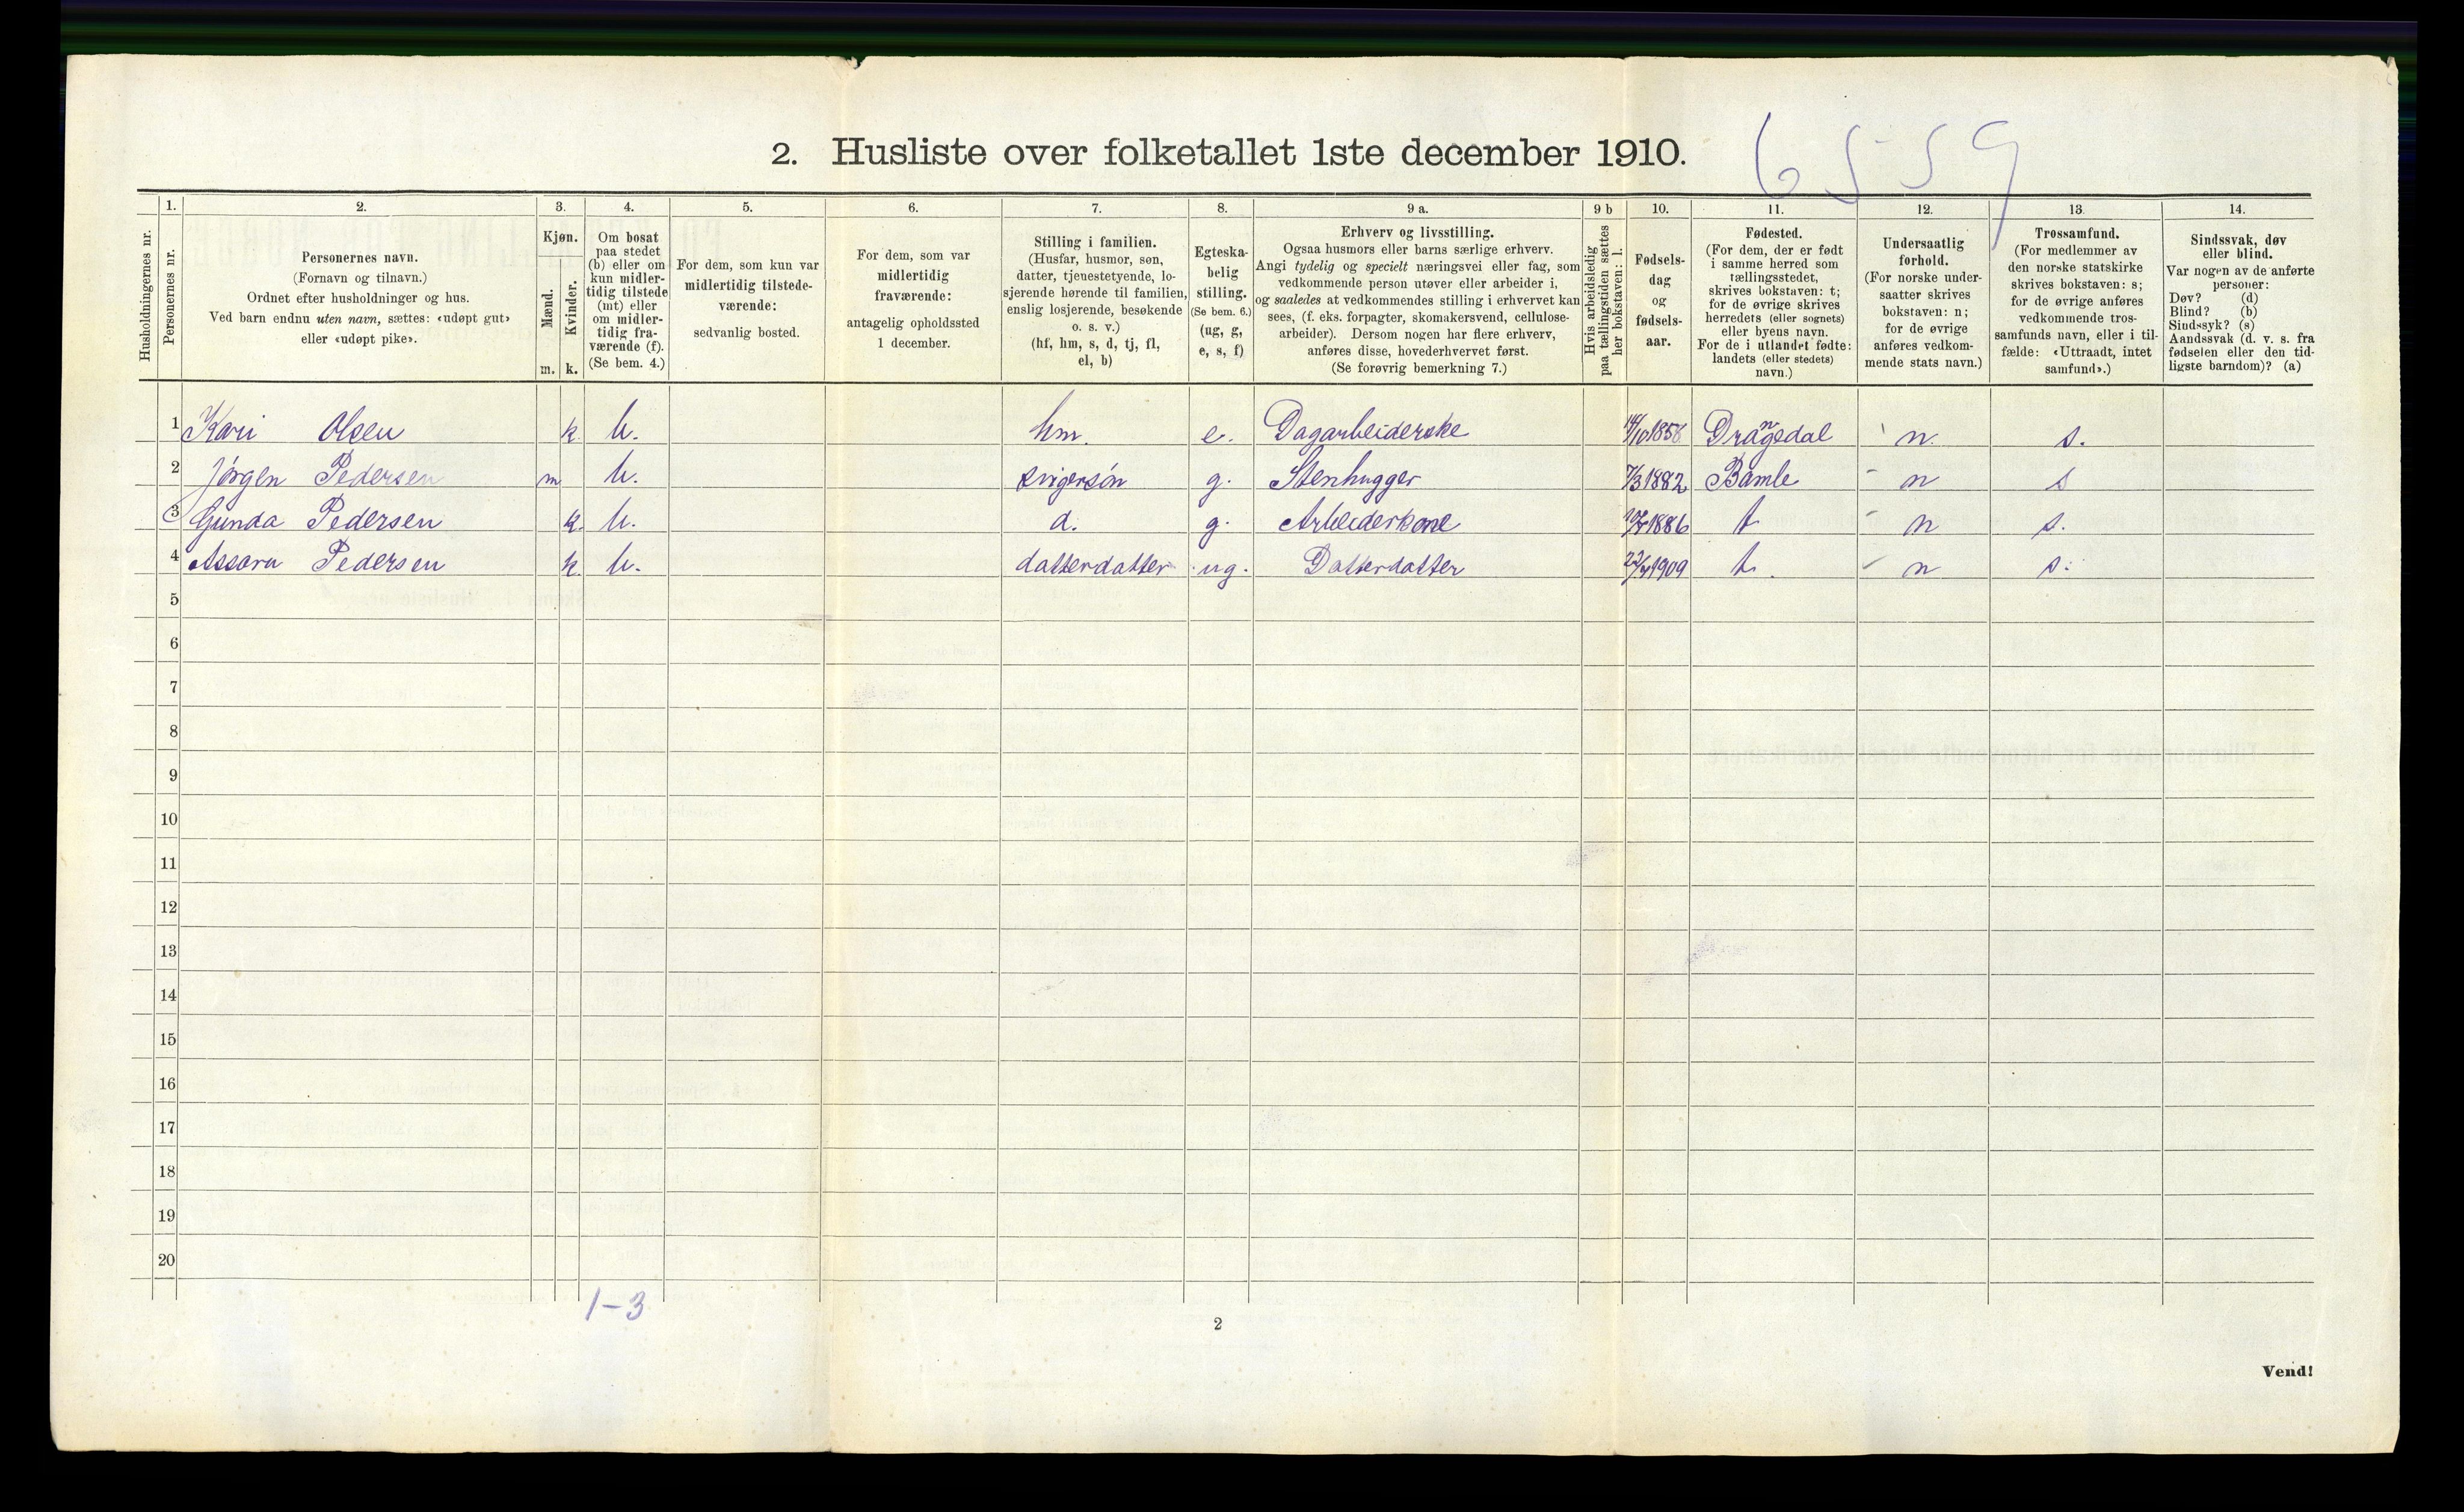 2. Husliste over folketallet 1ste december 1910.
6559
Husholdningernes nr.
1.
Personernes nr.
2.
Personernes navn.
(Fornavn og tilnavn.)
Ordnet efter husholdninger og hus.
Ved barn endnu uten navn, sættes: «udøpt gut»
eller «udøpt pike».
3.
Kjøn.
Mænd.
Kvinder.
m. k.
4.
Om bosat
paa stedet
(b) eller om
kun midler-
tidig tilstede
(mt) eller
om midler-
tidig fra-
værende (f).
(Se bem. 4.)
5.
For dem, som kun var
midlertidig tilstede-
værende:
sedvanlig bosted.
6.
For dem, som var
midlertidig
fraværende:
antagelig opholdssted
1 december.
7.
Stilling i familien.
(Husfar, husmor, søn,
datter, tjenestetyende, lo-
sjerende hørende til familien,
enslig losjerende, besøkende
o. s. v.)
(hf, hm, s, d, tj, fl,
el, b)
8.
Egteska-
belig
stilling.
(Se bem. 6.)
(ug, g,
e, s, f)
9 a.
Erhverv og livsstilling.
Ogsaa husmors eller barns særlige erhverv.
Angi tydelig og specielt næringsvei eller fag, som
vedkommende person utøver eller arbeider i,
og saaledes at vedkommendes stilling i erhvervet kan
sees, (f. eks. forpagter, skomakersvend, cellulose-
arbeider). Dersom nogen har flere erhverv,
anføres disse, hovederhvervet først.
(Se forøvrig bemerkning 7.)
9 b
Hvis arbeidsledig
paa tællingstiden sættes
her bokstaven: l.
10.
Fødsels-
dag
og
fødsels-
aar.
11.
Fødested.
(For dem, der er født
i samme herred som
tællingsstedet,
skrives bokstaven: t;
for de øvrige skrives
herredets (eller sognets)
eller byens navn.
For de i utlandet fødte:
landets (eller stedets)
navn.)
12.
Undersaatlig
forhold.
(For norske under-
saatter skrives
bokstaven: n;
for de øvrige
anføres vedkom-
mende stats navn.)
13.
Trossamfund.
(For medlemmer av
den norske statskirke
skrives bokstaven: s;
for de øvrige anføres
vedkommende tros-
samfunds navn, eller i til-
fælde: «Uttraadt, intet
samfund».)
14.
Sindssvak, døv
eller blind.
Var nogen av de anførte
personer:
Døv? (d)
Blind? (b)
Sindssyk? (s)
Aandssvak (d. v. s. fra
fødselen eller den tid-
ligste barndom)? (a)
1 Kari Olsen k. b. hm. e. Dagarbeiderske 14/10 1858 Drangedal n. s.
2 Jörgen Pedersen m b. svigersön g. Stenhugger 7/3 1882 Bamle n s
3 Gunda Pedersen k. b. d. g. Arbeiderkone 1886 t n s.
4 Assora Pedersen k. b. datterdatter ug. Datterdatter 1909 t. n s.
5
6
7
8
9
10
11
12
13
14
15
16
17
18
19
20
1-3
2
Vend!